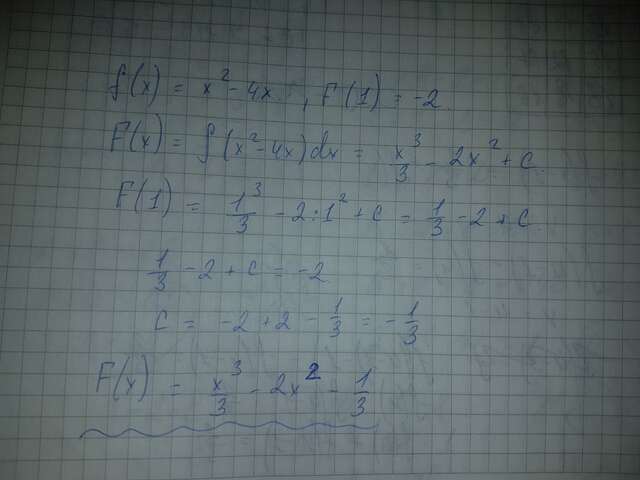 f(x) = x² - 4x. , F(1) = -2.
F(x) = ∫(x² - 4x)dx = x³/3 - 2x² + C.
F(1) = 1³/3 - 2·1² + C = 1/3 - 2 + C.
1/3 - 2 + C = -2
C = -2 + 2 - 1/3 = -1/3
F(x) = x³/3 - 2x² - 1/3